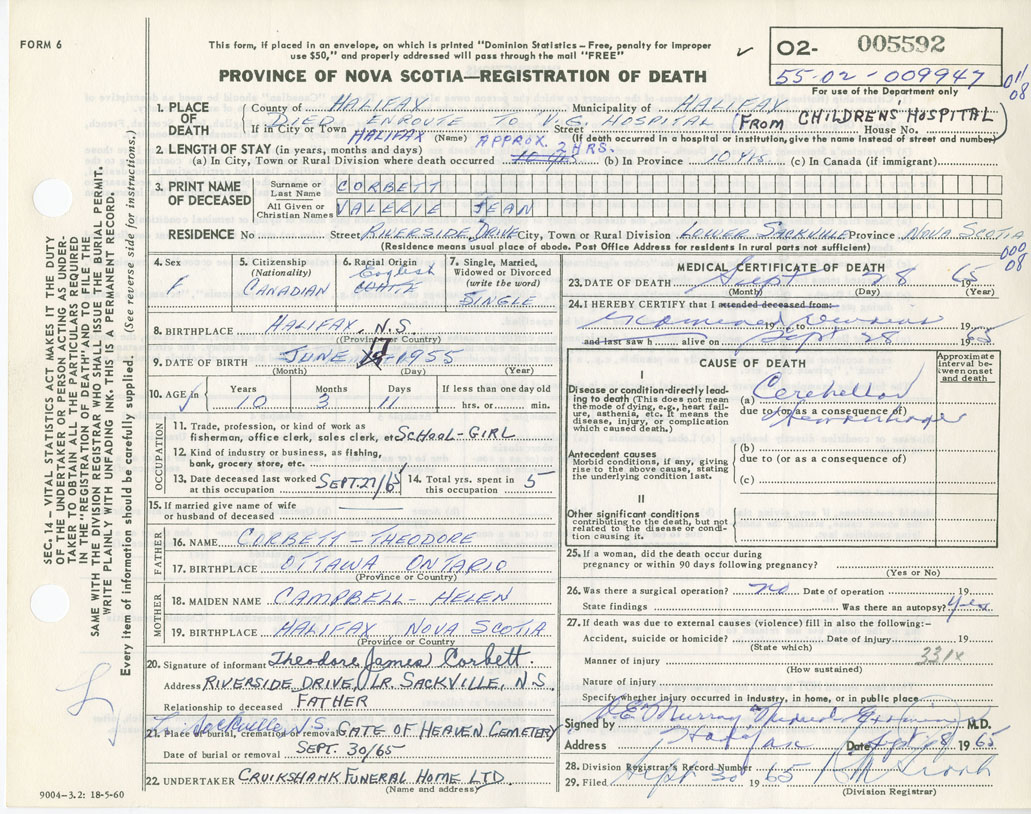 FORM 6
This form, if placed in an envelope, on which is printed "Dominion Statistics – Free, penalty for improper
use $50," and properly addressed will pass through the mail "FREE"
PROVINCE OF NOVA SCOTIA—REGISTRATION OF DEATH
O2- 005592
55-02-009947
For use of the Department only
011
08
SEC. 14 – VITAL STATISTICS ACT MAKES IT THE DUTY
OF THE UNDERTAKER OR PERSON ACTING AS UNDER-
TAKER TO OBTAIN ALL THE PARTICULARS REQUIRED
IN THE "REGISTRATION OF DEATH" AND TO FILE THE
SAME WITH THE DIVISION REGISTRAR WHO SHALL ISSUE THE BURIAL PERMIT.
WRITE PLAINLY WITH UNFADING INK–THIS IS A PERMANENT RECORD.
Every item of information should be carefully supplied. (See reverse side for instructions.)
1. PLACE OF DEATH County of HALIFAX Municipality of HALIFAX
DIED ENROUTE TO V.G. HOSPITAL (FROM CHILDRENS' HOSPITAL)
If in City or Town HALIFAX (Name) Street House No.
(If death occurred in a hospital or institution, give the name instead of street and number)
2. LENGTH OF STAY (in years, months and days) APPROX 2 HRS.
(a) In City, Town or Rural Division where death occurred (b) In Province 10 yrs. (c) In Canada (if immigrant)
3. PRINT NAME OF DECEASED Surname or Last Name CORBETT
All Given or Christian Names VALERIE JEAN
RESIDENCE No Street RIVERSIDE DRIVE City, Town or Rural Division LOWER SACKVILLE Province NOVA SCOTIA
(Residence means usual place of abode. Post Office Address for residents in rural parts not sufficient)
000
08
4. Sex F
5. Citizenship (Nationality) CANADIAN
6. Racial Origin English WHITE
7. Single, Married, Widowed or Divorced (write the word) SINGLE
8. BIRTHPLACE HALIFAX, N.S.
(Province or Country)
9. DATE OF BIRTH JUNE 17 1955
(Month) (Day) (Year)
10. AGE Years 10 Months 3 Days 11 If less than one day old hrs. or min.
OCCUPATION
11. Trade, profession, or kind of work as
fisherman, office clerk, sales clerk, etc SCHOOL-GIRL
12. Kind of industry or business, as fishing,
bank, grocery store, etc.
13. Date deceased last worked at this occupation SEPT. 27/65
14. Total yrs. spent in this occupation 5
15. If married give name of wife
or husband of deceased
FATHER
16. NAME CORBETT – THEODORE
17. BIRTHPLACE OTTAWA ONTARIO
(Province or Country)
MOTHER
18. MAIDEN NAME CAMPBELL – HELEN
19. BIRTHPLACE HALIFAX NOVA SCOTIA
(Province or Country)
20. Signature of informant Theodore James Corbett.
Address RIVERSIDE DRIVE, LR. SACKVILLE, N.S.
Relationship to deceased FATHER
Sackville N.S.
21. Place of burial, cremation or removal GATE OF HEAVEN CEMETERY
Date of burial or removal SEPT. 30/65
22. UNDERTAKER CRUIKSHANK FUNERAL HOME LTD.
(Name and address)
9004-3.2: 18-5-60
MEDICAL CERTIFICATE OF DEATH
23. DATE OF DEATH Sept 28 1965
(Month) (Day) (Year)
24. I HEREBY CERTIFY that I attended deceased from:
examined remains 19 to 19
and last saw h alive on Sept 28 1965
CAUSE OF DEATH
Approximate interval between onset and death
I
Disease or condition directly leading to death (This does not mean the mode of dying, e.g., heart failure, asthenia, etc. It means the disease, injury, or complication which caused death.)
(a) Cerebellar
due to (or as a consequence of)
Hemorrhage
Antecedent causes
Morbid conditions, if any, giving rise to the above cause, stating the underlying condition last.
(b)
due to (or as a consequence of)
(c)
II
Other significant conditions
contributing to the death, but not related to the disease or condition causing it.
25. If a woman, did the death occur during
pregnancy or within 90 days following pregnancy?
(Yes or No)
26. Was there a surgical operation? no Date of operation 19
State findings Was there an autopsy? yes
27. If death was due to external causes (violence) fill in also the following:–
Accident, suicide or homicide? Date of injury 19
(State which) 331x
Manner of injury
(How sustained)
Nature of injury
Specify whether injury occurred in industry, in home, or in public place
Signed by Murray Medical Examiner M.D.
Address Halifax Date Sept 28 1965
28. Division Registrar's Record Number
29. Filed Sept 30 1965
(Division Registrar)